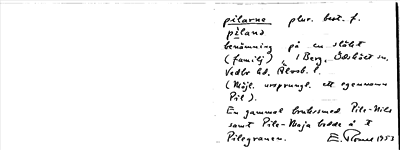 pilarna plur. best. f.
pilana
benämning på en släkt
(familj) i Berg, Ödsbåct sn,
Vedbo hd, Älvsb. l.
(Möjl. ursprungl. ett egennamn
Pil).
En gammal bruksmed Pile-Nils
samt Pile-Maja bodde å t
Pilegranen. E. 1953